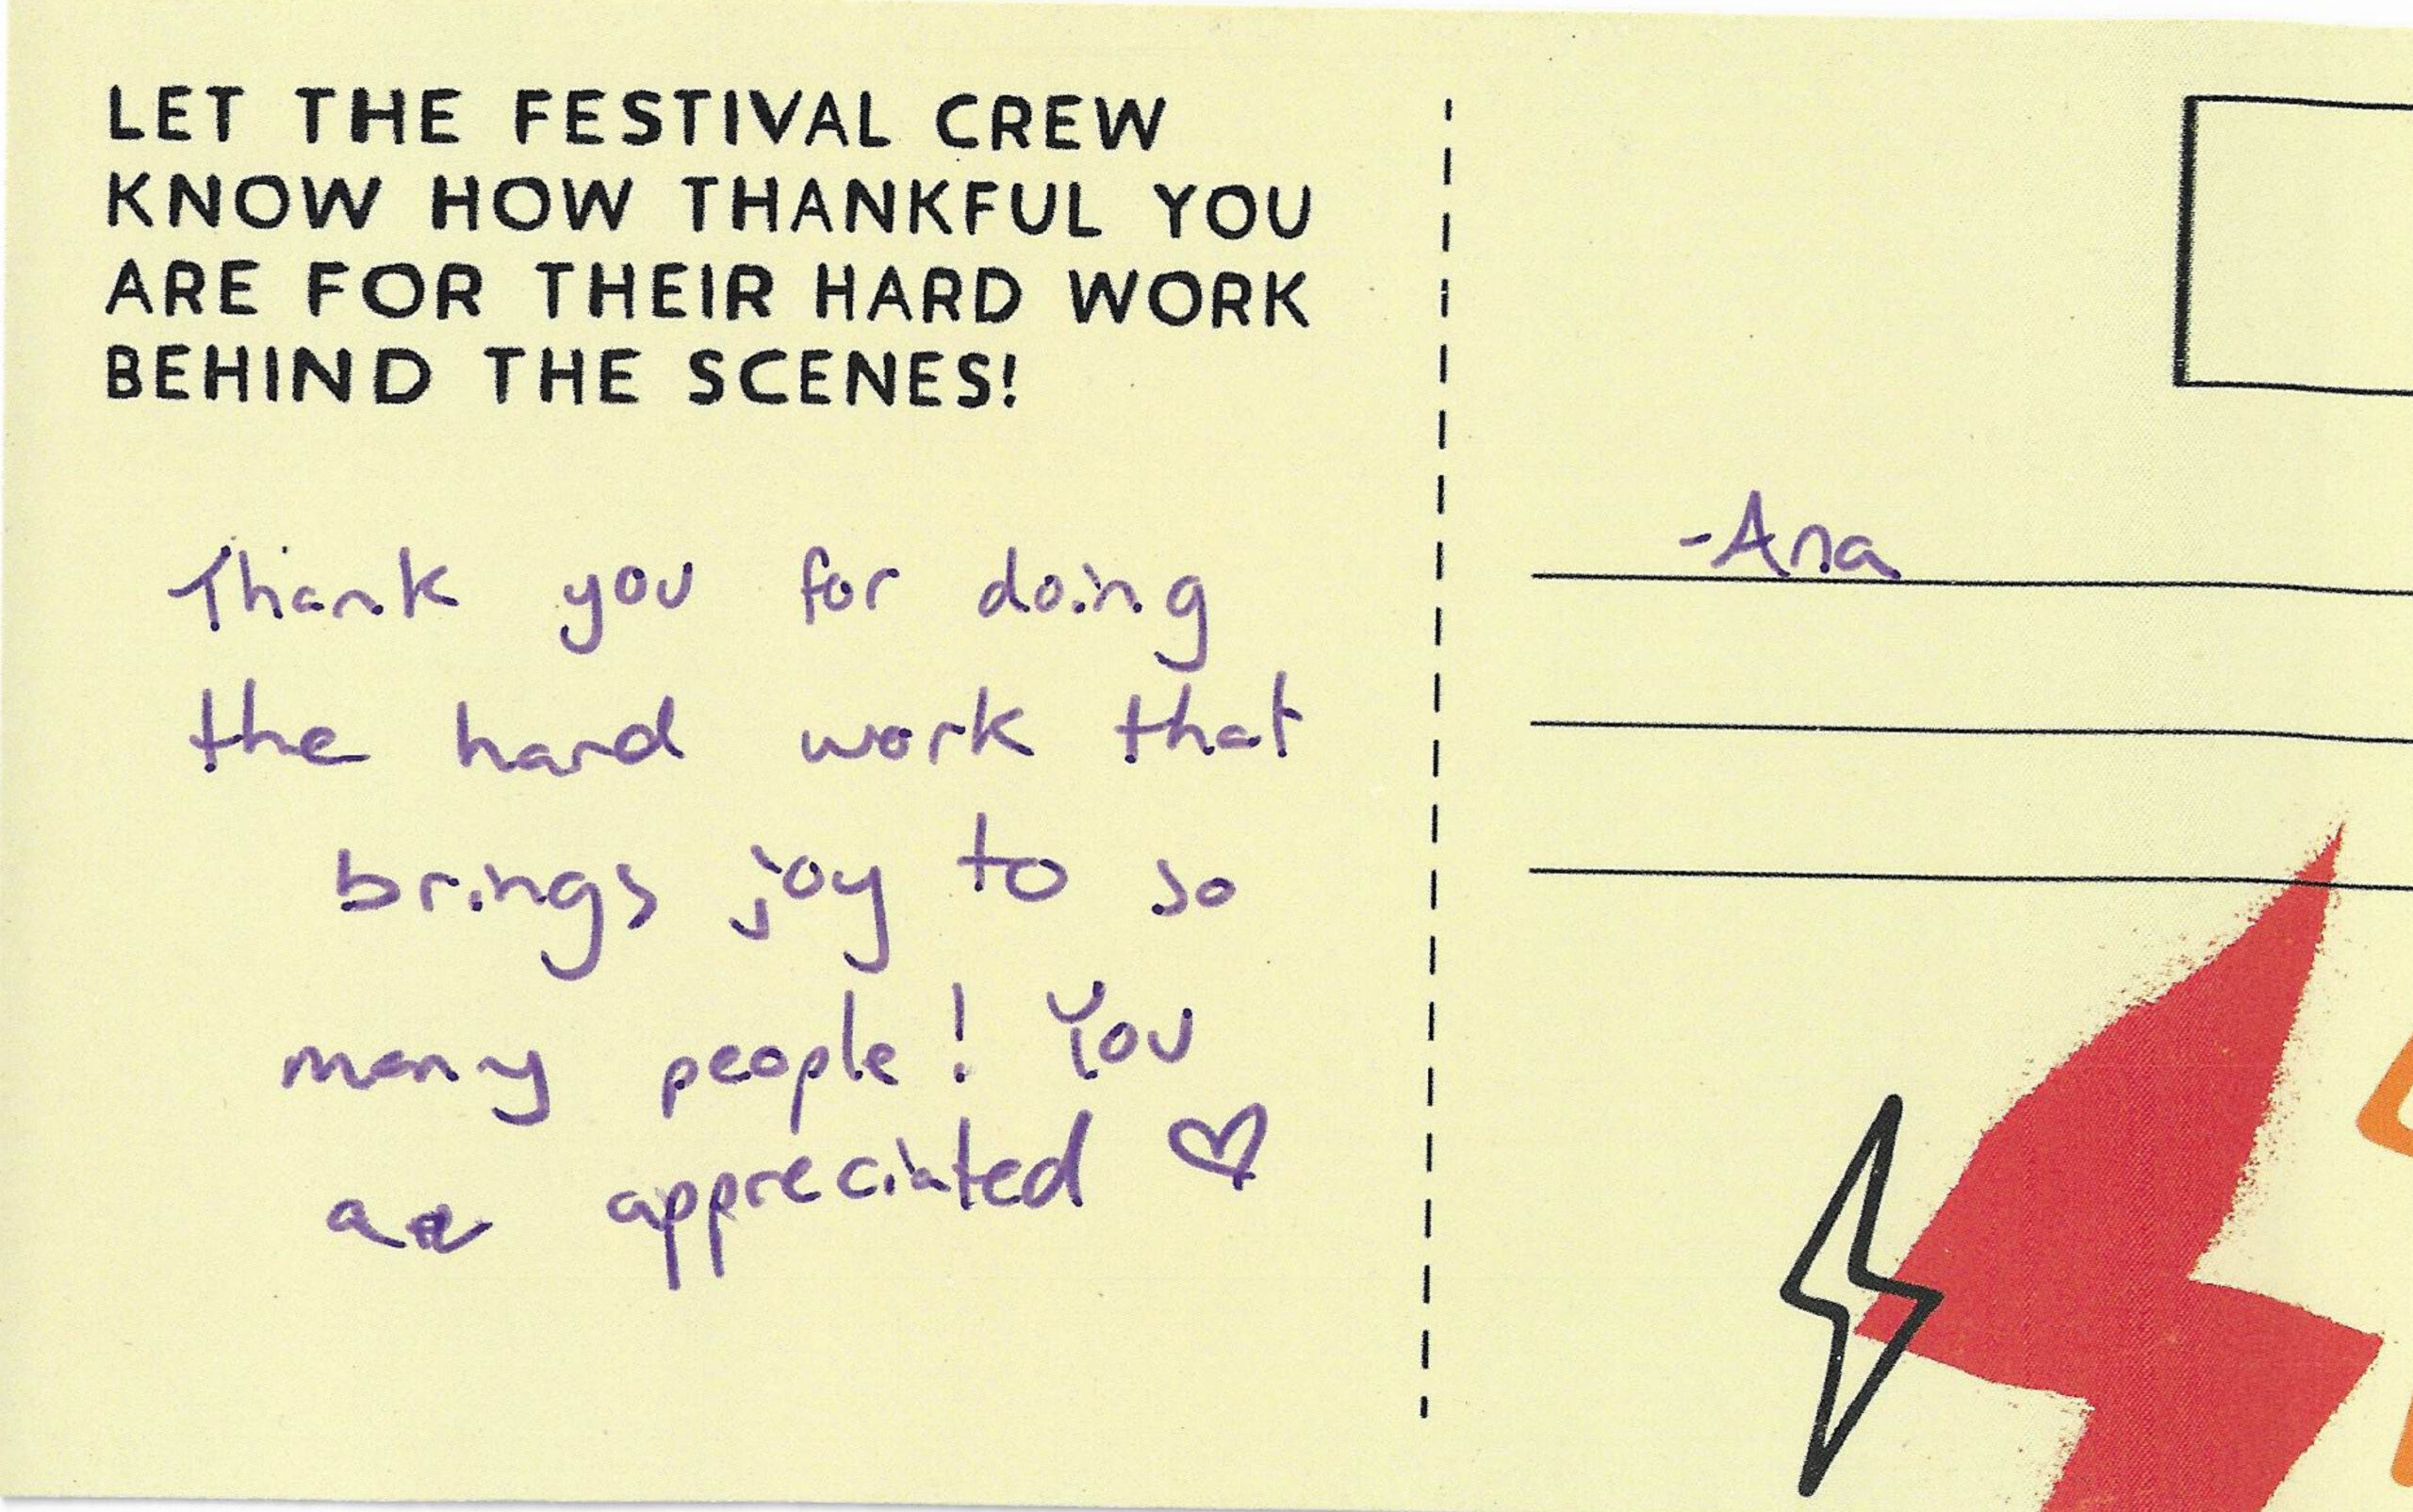 LET THE FESTIVAL CREW
KNOW HOW THANKFUL YOU
ARE FOR THEIR HARD WORK
BEHIND THE SCENES!
Thank you for doing
the hard work that
brings joy to so
many people! You
are appreciated ♡
-Ana